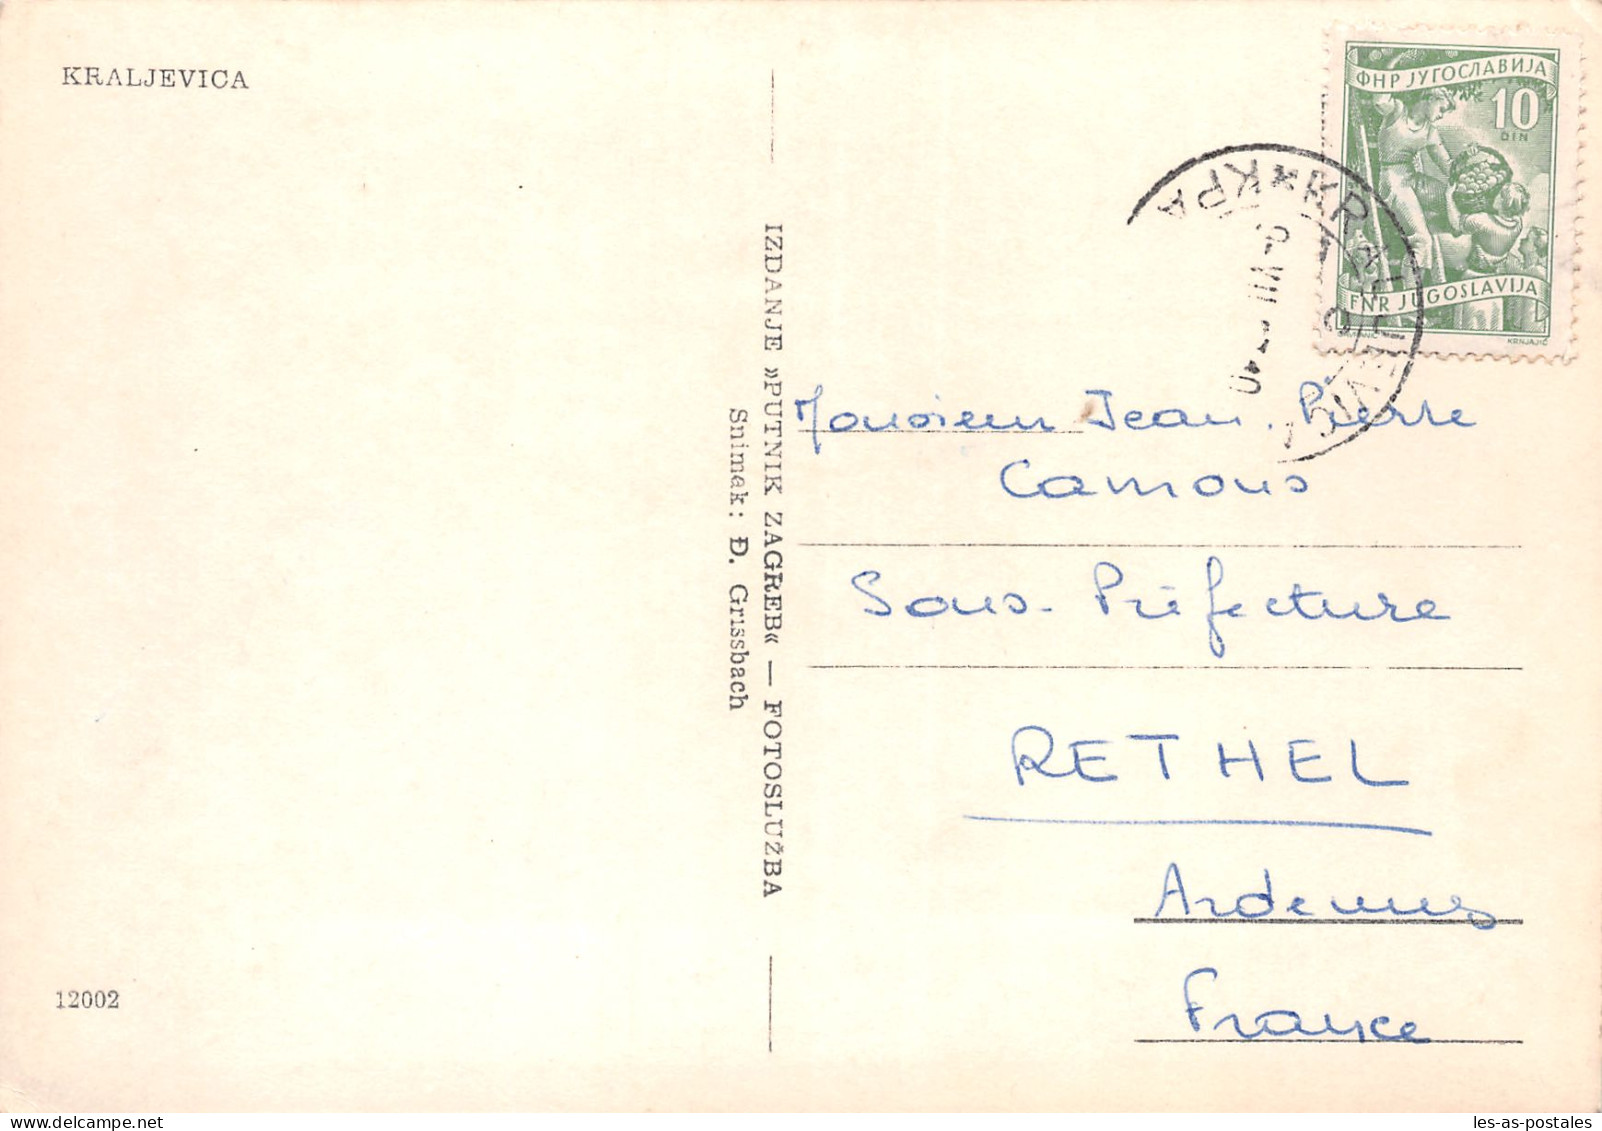 KRALJEVICA
12002
IZDANJE »PUTNIK ZAGREB« — FOTOSLUŽBA
Snimak: Đ. Grissbach
ФНР ЈУГОСЛАВИЈА
10
DIN
FNR JUGOSLAVIJA
KRNJAJIĆ
KRALJEVICA
КРА
Monsieur Jean-Pierre
Camous
Sous-Préfecture
RETHEL
Ardennes
France
les-as-postales